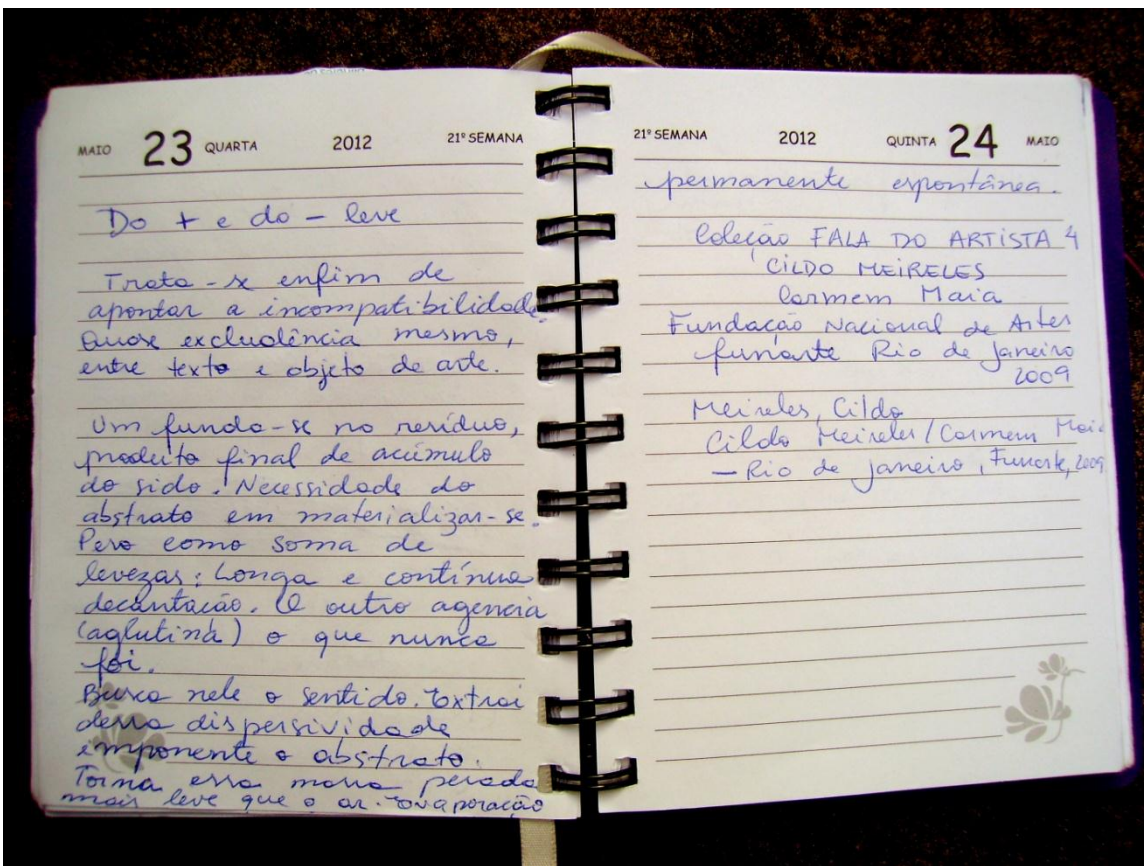 MAIO 23 QUARTA 2012 21º SEMANA
Do + e do - leve
Trata-se enfim de
apontar a incompatibilidade.
Quase excludência mesmo,
entre texto e objeto de arte.
Um funda-se no resíduo,
produto final de acúmulo
do sido. Necessidade do
abstrato em materializar-se.
Peso como soma de
levezas: Longa e contínua
decantação. O outro agencia
(aglutina) o que nunca
foi.
Busca nele o sentido. Extrai
dessa dispersividade
imponente o abstrato.
Torna essa massa pesada
mais leve que o ar. Evaporação
21º SEMANA 2012 QUINTA 24 MAIO
permanente espontânea.
Coleção FALA DO ARTISTA 4
CILDO MEIRELES
Carmem Maia
Fundação Nacional de Artes
funarte Rio de Janeiro
2009
Meireles, Cildo
Cildo Meireles/Carmem Maia
- Rio de janeiro, Funarte, 2009